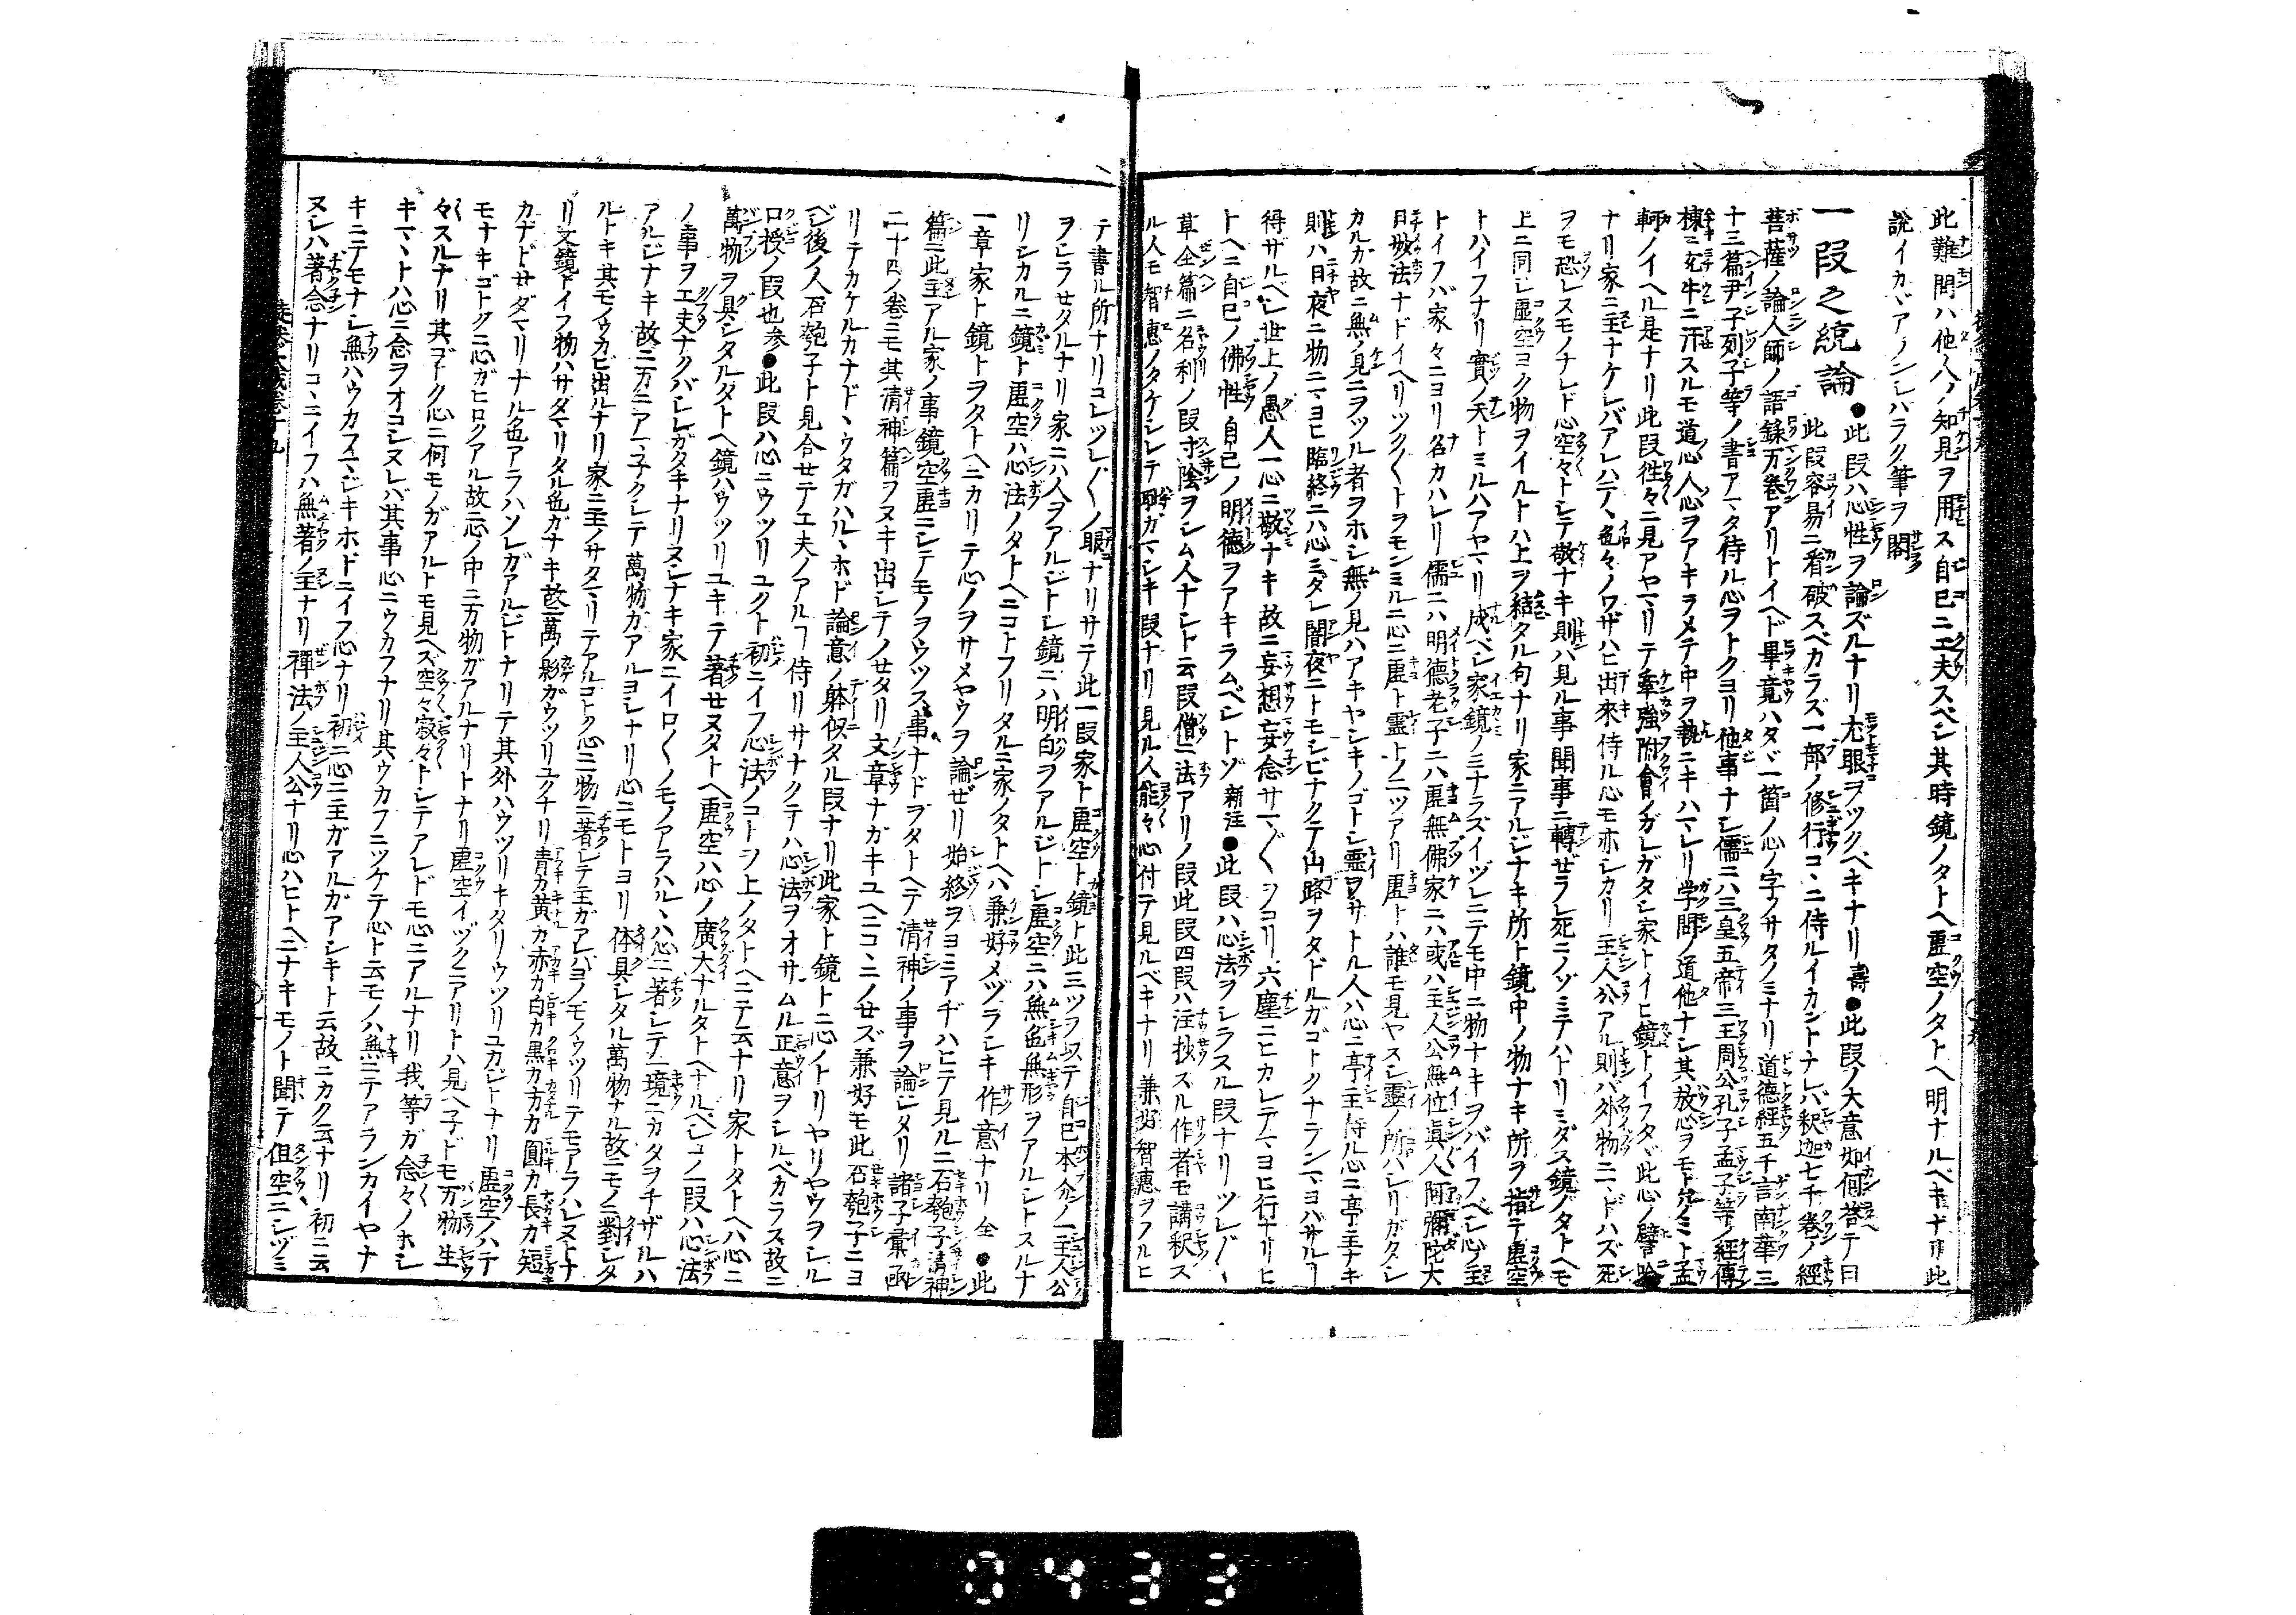 此難問ハ他人ノ知見ヲ用ス自己ニ工夫スベシ其時鏡ノタトヘ虚空ノタトヘ明ナルベキナリ此
説イカヾアランシハラク筆ヲ閣
一段之統論 ●此段ハ心性ヲ論ズルナリ尤眼ヲツクベキナリ 壽●此段ノ大意如何答テ曰
此段容易ニ看破スベカラズ一部ノ修行コヽニ侍ルイカントナレバ釈迦七千巻ノ經
菩薩ノ論人師ノ語録万巻アリトイヘド畢竟ハタヾ一箇ノ心ノ字ヲサタノミナリ道徳經五千言南華三
十三篇尹子列子等ノ書アマタ侍ル心ヲトクヨリ他事ナシ儒ニハ三皇五帝三王周公孔子孟子等ノ經傳
棟ニ充牛ニ汗スルモ道心人心ヲアキラメテ中ヲ執ニキハマレリ学問ノ道他ナシ其放心ヲモトムノミト孟
軻ノイヘル是ナリ此段徃々ニ見アヤマリテ牽強附會ノガレガタシ家トイヒ鏡トイフタヾ此心ノ譬喩
ナリ家ニ主ナケレバアレハテヽ色々ノワザハヒ出來侍ル心モ亦シカリ主人公アル則バ外物ニマドハズ死
ヲモ恐レスモノナレド心空々トシテ敬ナキ則ハ見ル事聞事ニ轉ぜラレ死ニノゾミテハトリミダス鏡ノタトヘモ
上ニ同シ虚空ヨク物ヲイルトハ上ヲ結タル句ナリ家ニアルジナキ所ト鏡中ノ物ナキ所ヲ指テ虚空
トハイフナリ實ノ天トミルハアヤマリ成ベシ家鏡ノミナラズイヅレニテモ中ニ物ナキヲバイフベシ心ヲ主
トイフバ家々ニヨリ名カハレリ儒ニハ明徳老子ニハ虚無佛家ニハ或ハ主人公無位眞人阿彌陀大
日妙法ナドイヘリツク〱トヲモンミルニ心ニ虚ト霊トノ二ツアリ虚トハ誰モ見ヤスシ霊ノ所ハシリガタシ
カルガ故ニ無ノ見ニヲツル者ヲホシ無ノ見ハアキヤシキノゴトシ霊ヲサトル人ハ心ニ亭主侍ル心ニ亭主ナキ
則ハ日夜ニ物ニマヨヒ臨終ニハ心ミダレ闇夜ニトモシビナクテ山路ヲタドルガゴトクナランマヨハサルヿ
得ザルヘシ世上ノ愚人一心ニ敬ナキ故ニ妄想妄念サマ〲ヲコリ六塵ニヒカレテマヨヒ行ナリヒ
トヘニ自己ノ佛性自己ノ明徳ヲアキラムベシトゾ 新注●此段ハ心法ヲシラスル段ナリツレ〲
草全篇ニ名利ノ段寸陰ヲシム人ナシト云段僧ニ法アリノ段此段四段ハ注抄スル作者モ講釈ス
ル人モ智惠ノタケシレテ恥ガマシキ段ナリ見ル人能々心付テ見ルベキナリ兼好智惠ヲフルヒ
テ書ル所ナリコレツレ〱ノ眼ナリサテ此一段家ト虚空ト鏡ト此三ツヲ以テ自己本分ノ一主人公
ヲシラせタルナリ家ニハ人ヲアルジトシ鏡ニハ明白ヲアルジトシ虚空ニハ無色無形ヲアルシトスルナ
リシカルニ鏡ト虚空ハ心法ノタトヘニコトフリタルニ家ノタトヘハ兼好メヅラシキ作意ナリ 全 ●此
一章家ト鏡トヲタトヘニカリテ心ノヲサメヤウヲ論ぜリ始終ヲヨミアヂハヒテ見ルニ石匏子清神
篇ニ此主アル家ノ事鏡空虚ニシテモノヲウツス事ナドヲタトヘテ清神ノ事ヲ論シタリ諸子彙函
二十四ノ巻ニモ其清神篇ヲヌキ出シテノせタリ文章ナガキユヘニコヽニノせズ兼好モ此石匏子ニヨ
リテカケルカナドヽウタガハルヽホド論意ノ躰似タル段ナリ此家ト鏡トニ心イトリヤリヤウヲシル
ベシ後ノ人石匏子ト見合せテ工夫ノアルヿ侍リサナクテハ心法ヲオサムル正意ヲシルベカラズ故ニ
口授ノ段也 参●此段ハ心ニウツリユクト初ニイフ心法ノコトヲ上ノタトヘニテ云ナリ家トタトヘハ心ニ
萬物ヲ具シタルタトヘ鏡ハウツリユキテ著せヌタトヘ虚空ハ心ノ廣大ナルタトヘナルベシコノ一段ハ心法
ノ事ヲ工夫ナクバシレガタキナリヌシナキ家ニイロ〱ノモノアラハルヽハ心ニ著シテ一境ニカタヲチザルハ
アルジナキ故ニ万ニアマネクシテ萬物ガアルヨシナリ心ニモトヨリ体具シタル萬物ナル故ニモノニ對シタ
ルトキ其モノウカビ出ルナリ家ニ主ノサタマリテアルコトク心ニ物ニ著シテ主ガアレバヨノモノウツリテモアラハレヌトナ
リ又鏡トイフ物ハサダマリタル色ガナキ故ニ萬ノ影ガウツリユクナリ青カ黄カ赤カ白カ黒カ方カ圓カ長カ短
カナドサダマリナル色アラハソレガアルジトナリテ其外ハウツリキタリウツリユカジトナリ虚空ノハテ
モナキゴトクニ心ガヒロクアル故ニ心ノ中ニ万物ガアルナリトナリ虚空イヅクニアリトハ見ヘ子ドモ万物生
々スルナリ其ゴトク心ニ何モノガアルトモ見ヘズ空々寂々トシテアレドモ心ニアルナリ我等ガ念々ノホシ
キマヽトハ心ニ念ヲオコシヌレバ其事心ニウカフナリ其ウカフニツケテ心ト云モノハ無ニテアランカイヤナ
キニテモナシ無ハウカフマジキホドニイフ心ナリ初ニ心ニ主ガアルガアシキト云故ニカク云ナリ初ニ云
ヌシハ著念ナリコヽニイフハ無著ノ主ナリ 禪法ノ主人公ナリ心ハヒトヘニナキモノト聞テ但空ニシヅミ
0433